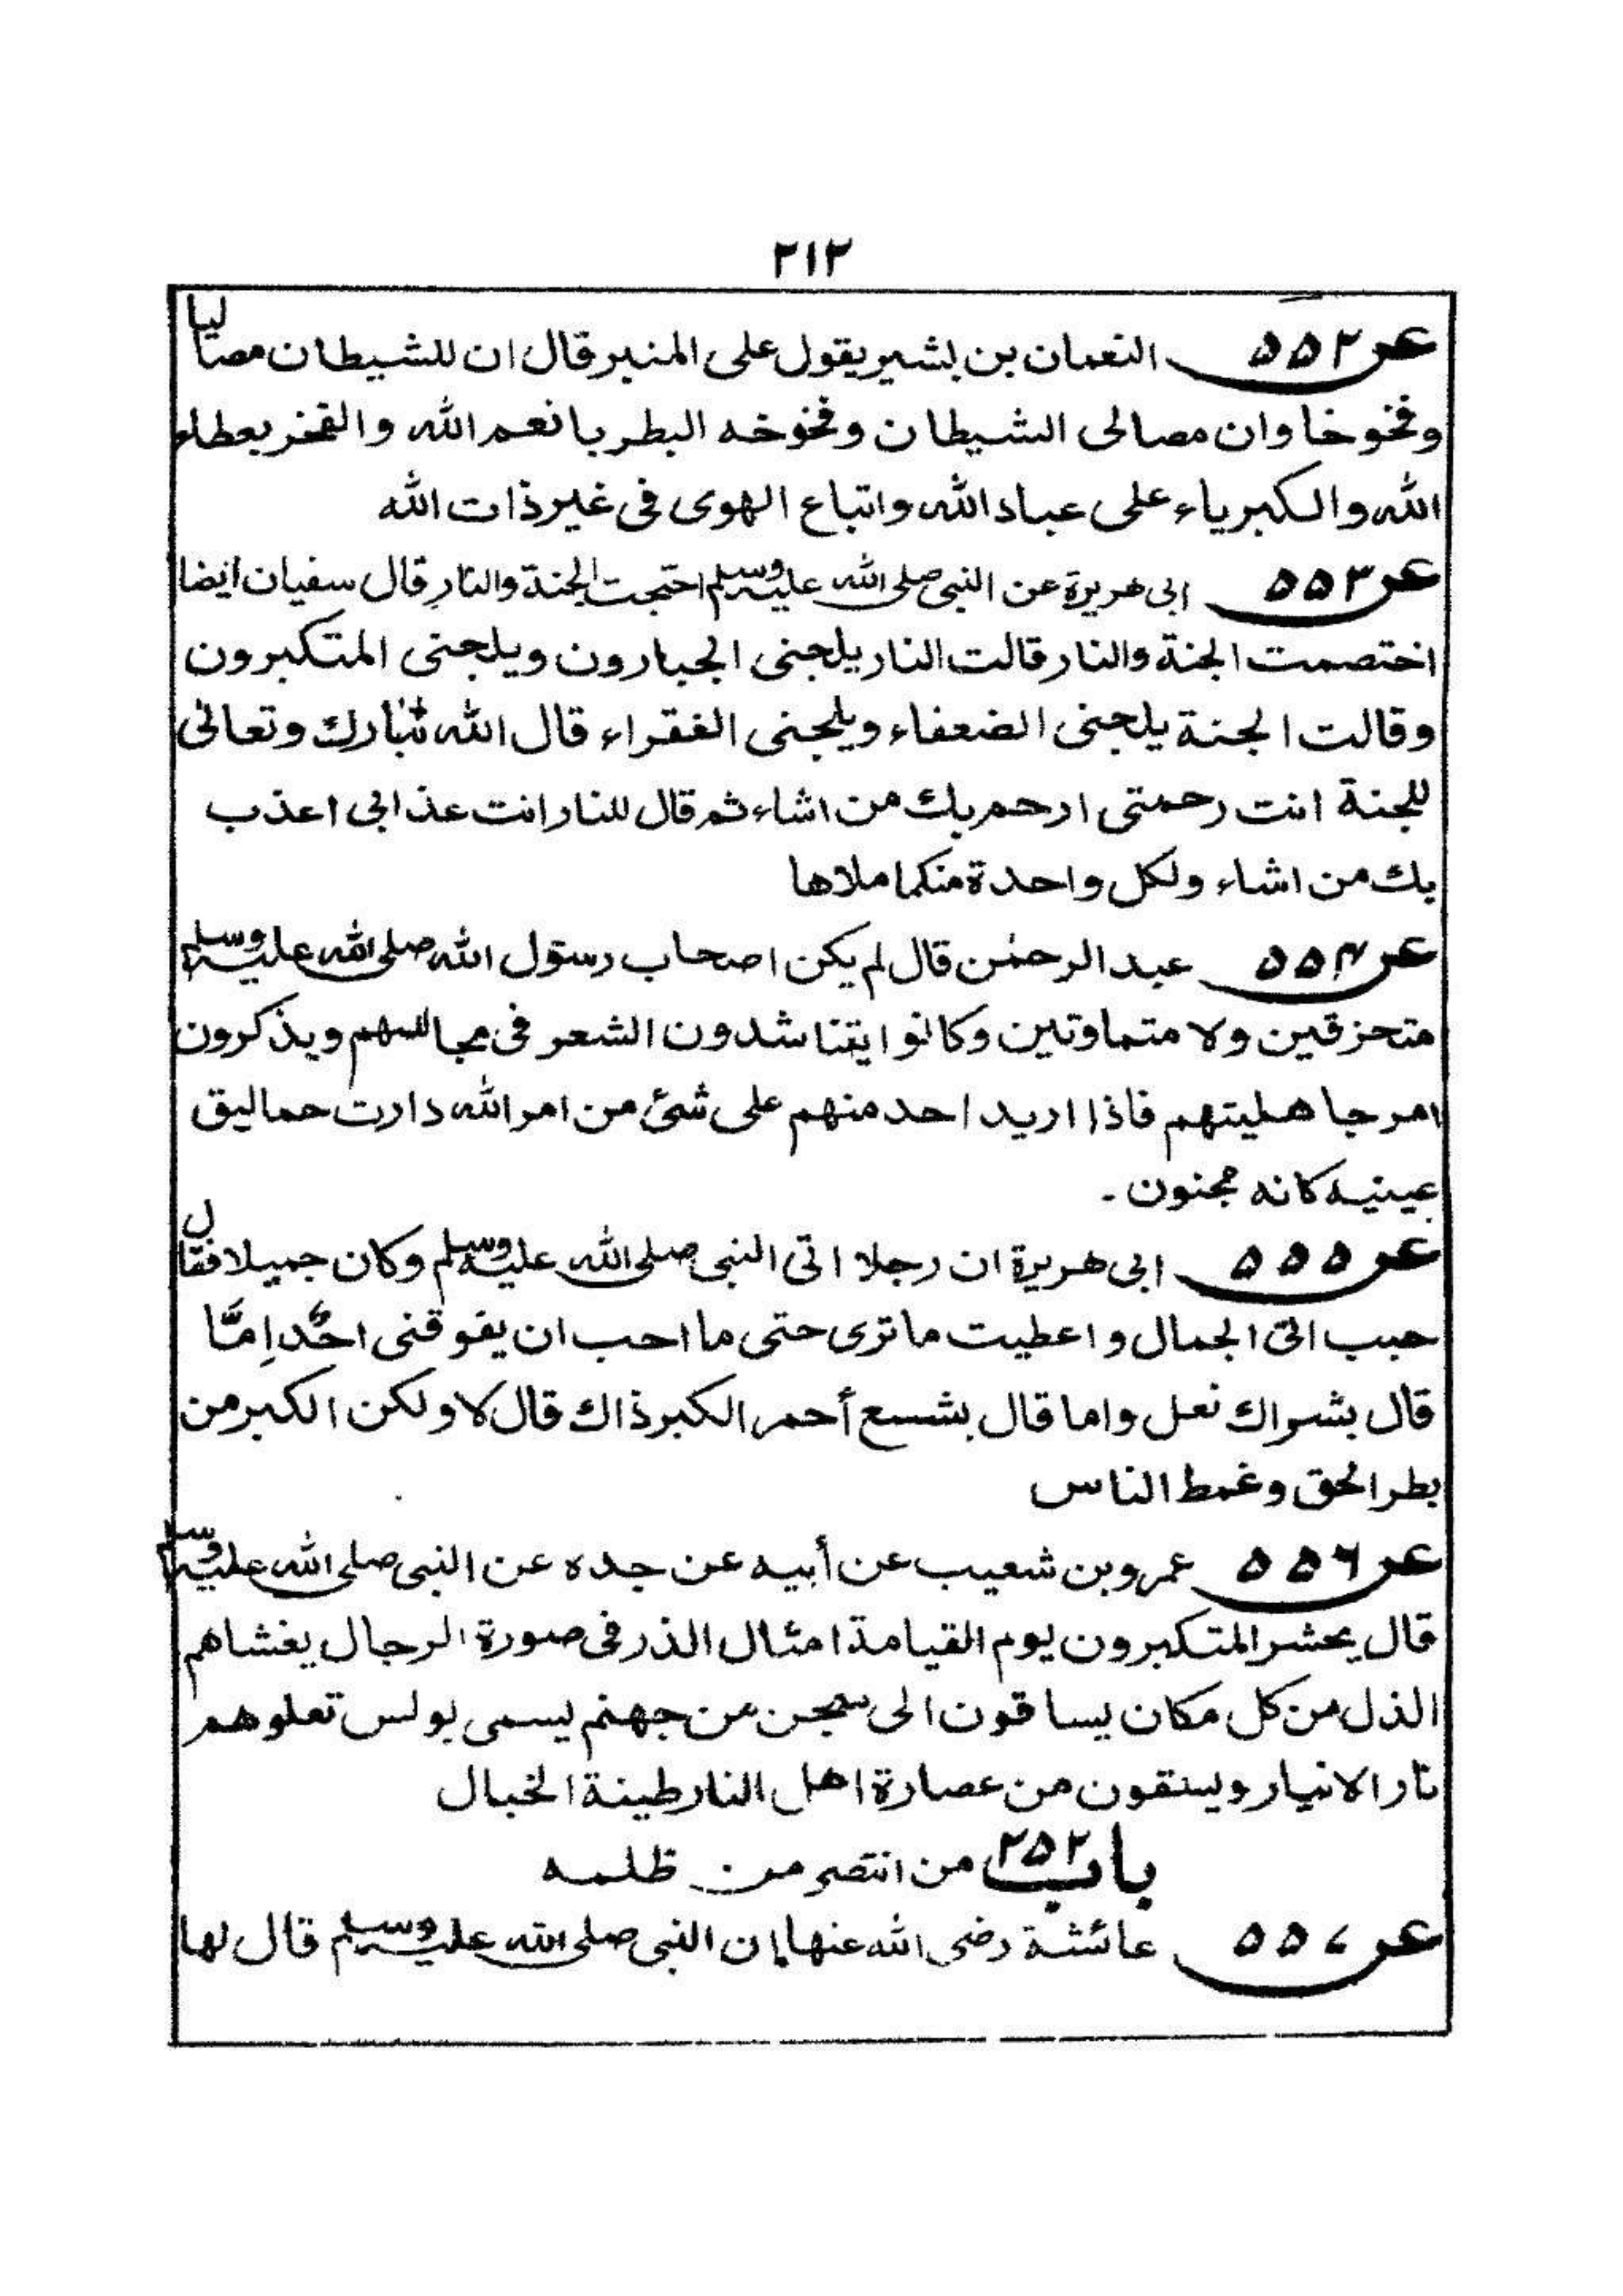 ٢١٢
عن ٥٥٢ النعمان بن بشير يقول على المنبر قال ان للشيطان مصاليا
وفخوخا وان مصالى الشيطان وفخوخه البطر بانعم الله والفخر بعطاء
الله والكبرياء على عباد الله واتباع الهوى فى غير ذات الله
عن ٥٥٣ ابى هريرة عن النبى صلى الله عليه وسلم احتجت الجنة والنار قال سفيان ايضا
اختصمت الجنة والنار قالت النار يلجنى الجبارون ويلجنى المتكبرون
وقالت الجنة يلجنى الضعفاء ويلجنى الفقراء قال الله تبارك وتعالى
للجنة انت رحمتى ارحم بك من اشاء ثم قال للنار انت عذابى اعذب
بك من اشاء ولكل واحدة منكما ملاها
عن ٥٥٤ عبد الرحمٰن قال لم يكن اصحاب رسول الله صلى الله عليه وسلم
متحزقين ولا متماوتين وكانوا يتناشدون الشعر فى مجالسهم ويذكرون
امر جاهليتهم فاذا اريد احد منهم على شئ من امر الله دارت حماليق
عينيه كانه مجنون -
عن ٥٥٥ ابى هريرة ان رجلا اتى النبى صلى الله عليه وسلم وكان جميلا فقال
حبب الىّ الجمال و اعطيت ما ترى حتى ما احب ان يفوقنى احد اِمّا
قال بشراك نعل واما قال بشسع أحمر الكبر ذاك قال لا ولكن الكبر من
بطر الحق و غمط الناس
عن ٥٥٦ عمرو بن شعيب عن أبيه عن جده عن النبى صلى الله عليه وسلم
قال يحشر المتكبرون يوم القيامة امثال الذر فى صورة الرجال يغشاهم
الذل من كل مكان يساقون الى سجن من جهنم يسمى بولس تعلوهم
نار الانيار ويسقون من عصارة اهل النار طينة الخبال
باب ٢٥٢ من انتصر من ظلمه
عن ٥٥٧ عائشة رضى الله عنها ان النبى صلى الله عليه وسلم قال لها